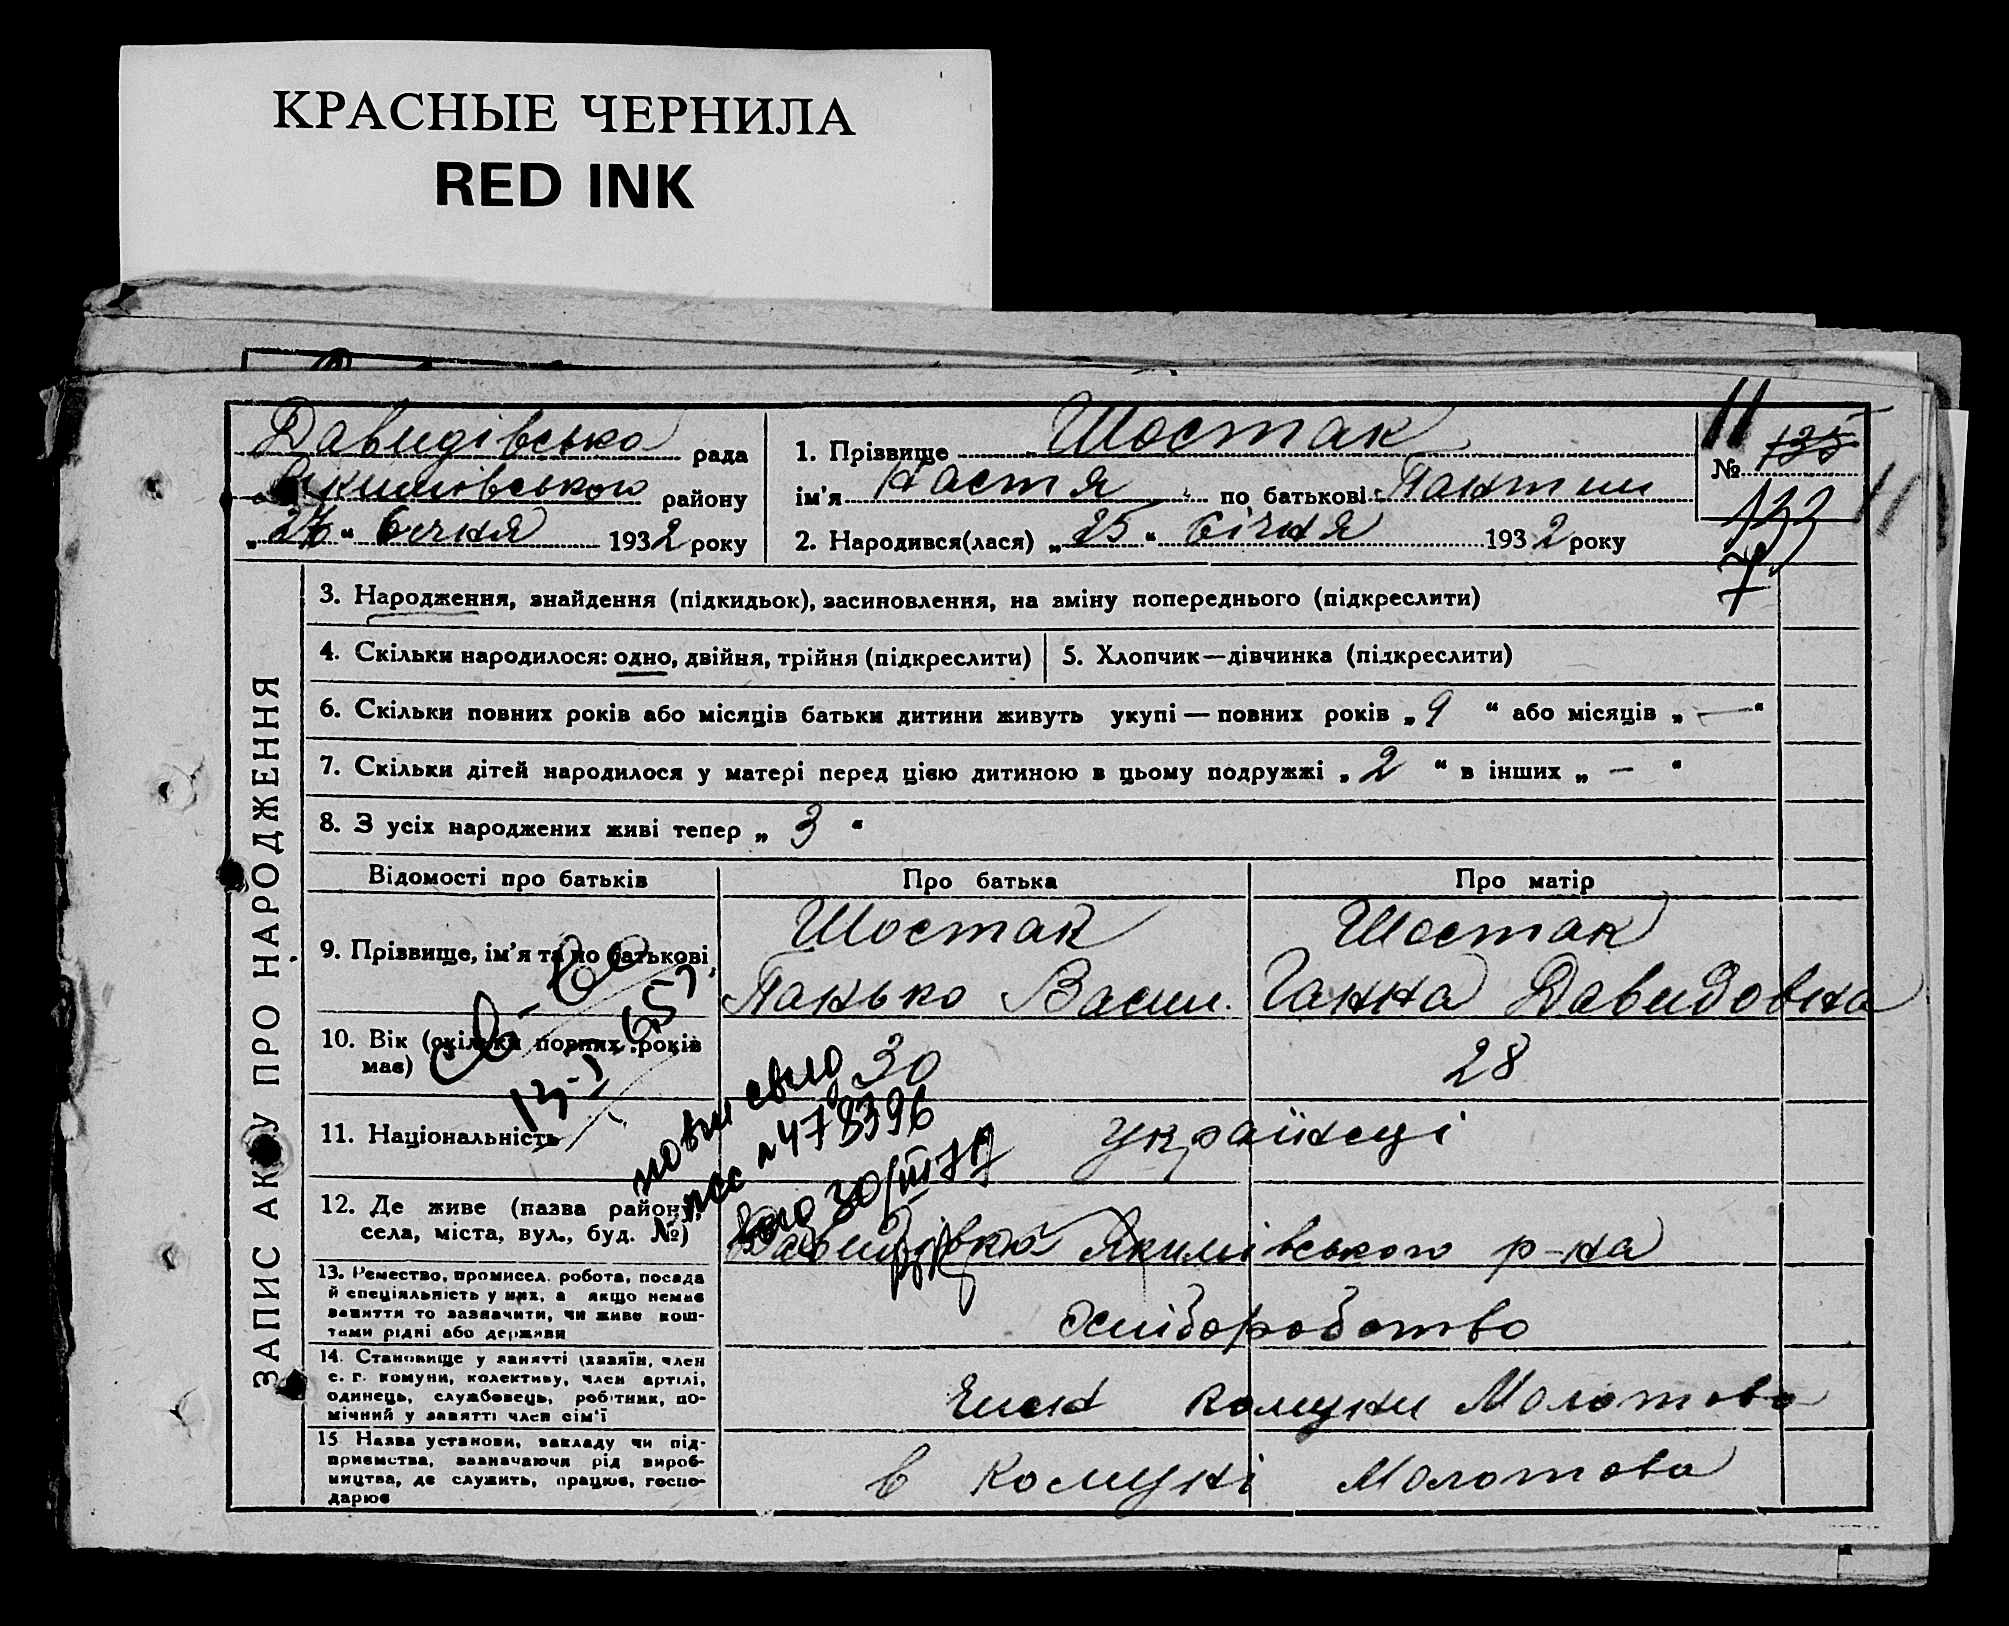 КРАСНЫЕ ЧЕРНИЛА
RED INK
Давидівська рада
Якимівського району
"24" Січня 1932 року
1. Прізвище Шостак
ім'я Настя по батькові
2. Народився(лася) "25" Січня 1932 року
11
№ 135
133
7
11
ЗАПИС АКТУ ПРО НАРОДЖЕННЯ
3. Народження, знайдення (підкидьок), засиновлення, на зміну попереднього (підкреслити)
4. Скільки народилося: одно, двійня, трійня (підкреслити)
5. Хлопчик—дівчинка (підкреслити)
6. Скільки повних років або місяців батьки дитини живуть укупі — повних років „ 9 “ або місяців „ — “
7. Скільки дітей народилося у матері перед цією дитиною в цьому подружжі „ 2 “ в інших „ — “
8. З усіх народжених живі тепер „ 3 “
Відомості про батьків Про батька Про матір
9. Прізвище, ім'я та по батькові
Шостак
Панько Васил.
Шостак
Ганна Давидовна
10. Вік (скільки повних років має)
30
28
11. Національність
Українеці
12. Де живе (назва району, села, міста, вул., буд. №)
Давидівка Якимівського р-на
13. Ремество, промисел. робота, посада
й спеціяльність у них, а якщо немає
заняття то зазначити, чи живе кош-
тами рідні або держави
Хліборобство
14. Становище у занятті (хазяїн, член
с. г. комуни, колективу, член артілі,
одинець, службовець, робітник, по-
мічний у занятті член сім'ї
Член комуни Молотова
15 Назва установи, закладу чи під-
приємства, зазначаючи рід вироб-
ництва, де служить, працює, госпо-
дарює
в Комуні Молотова
повт свид
№ 478396
30/III 77